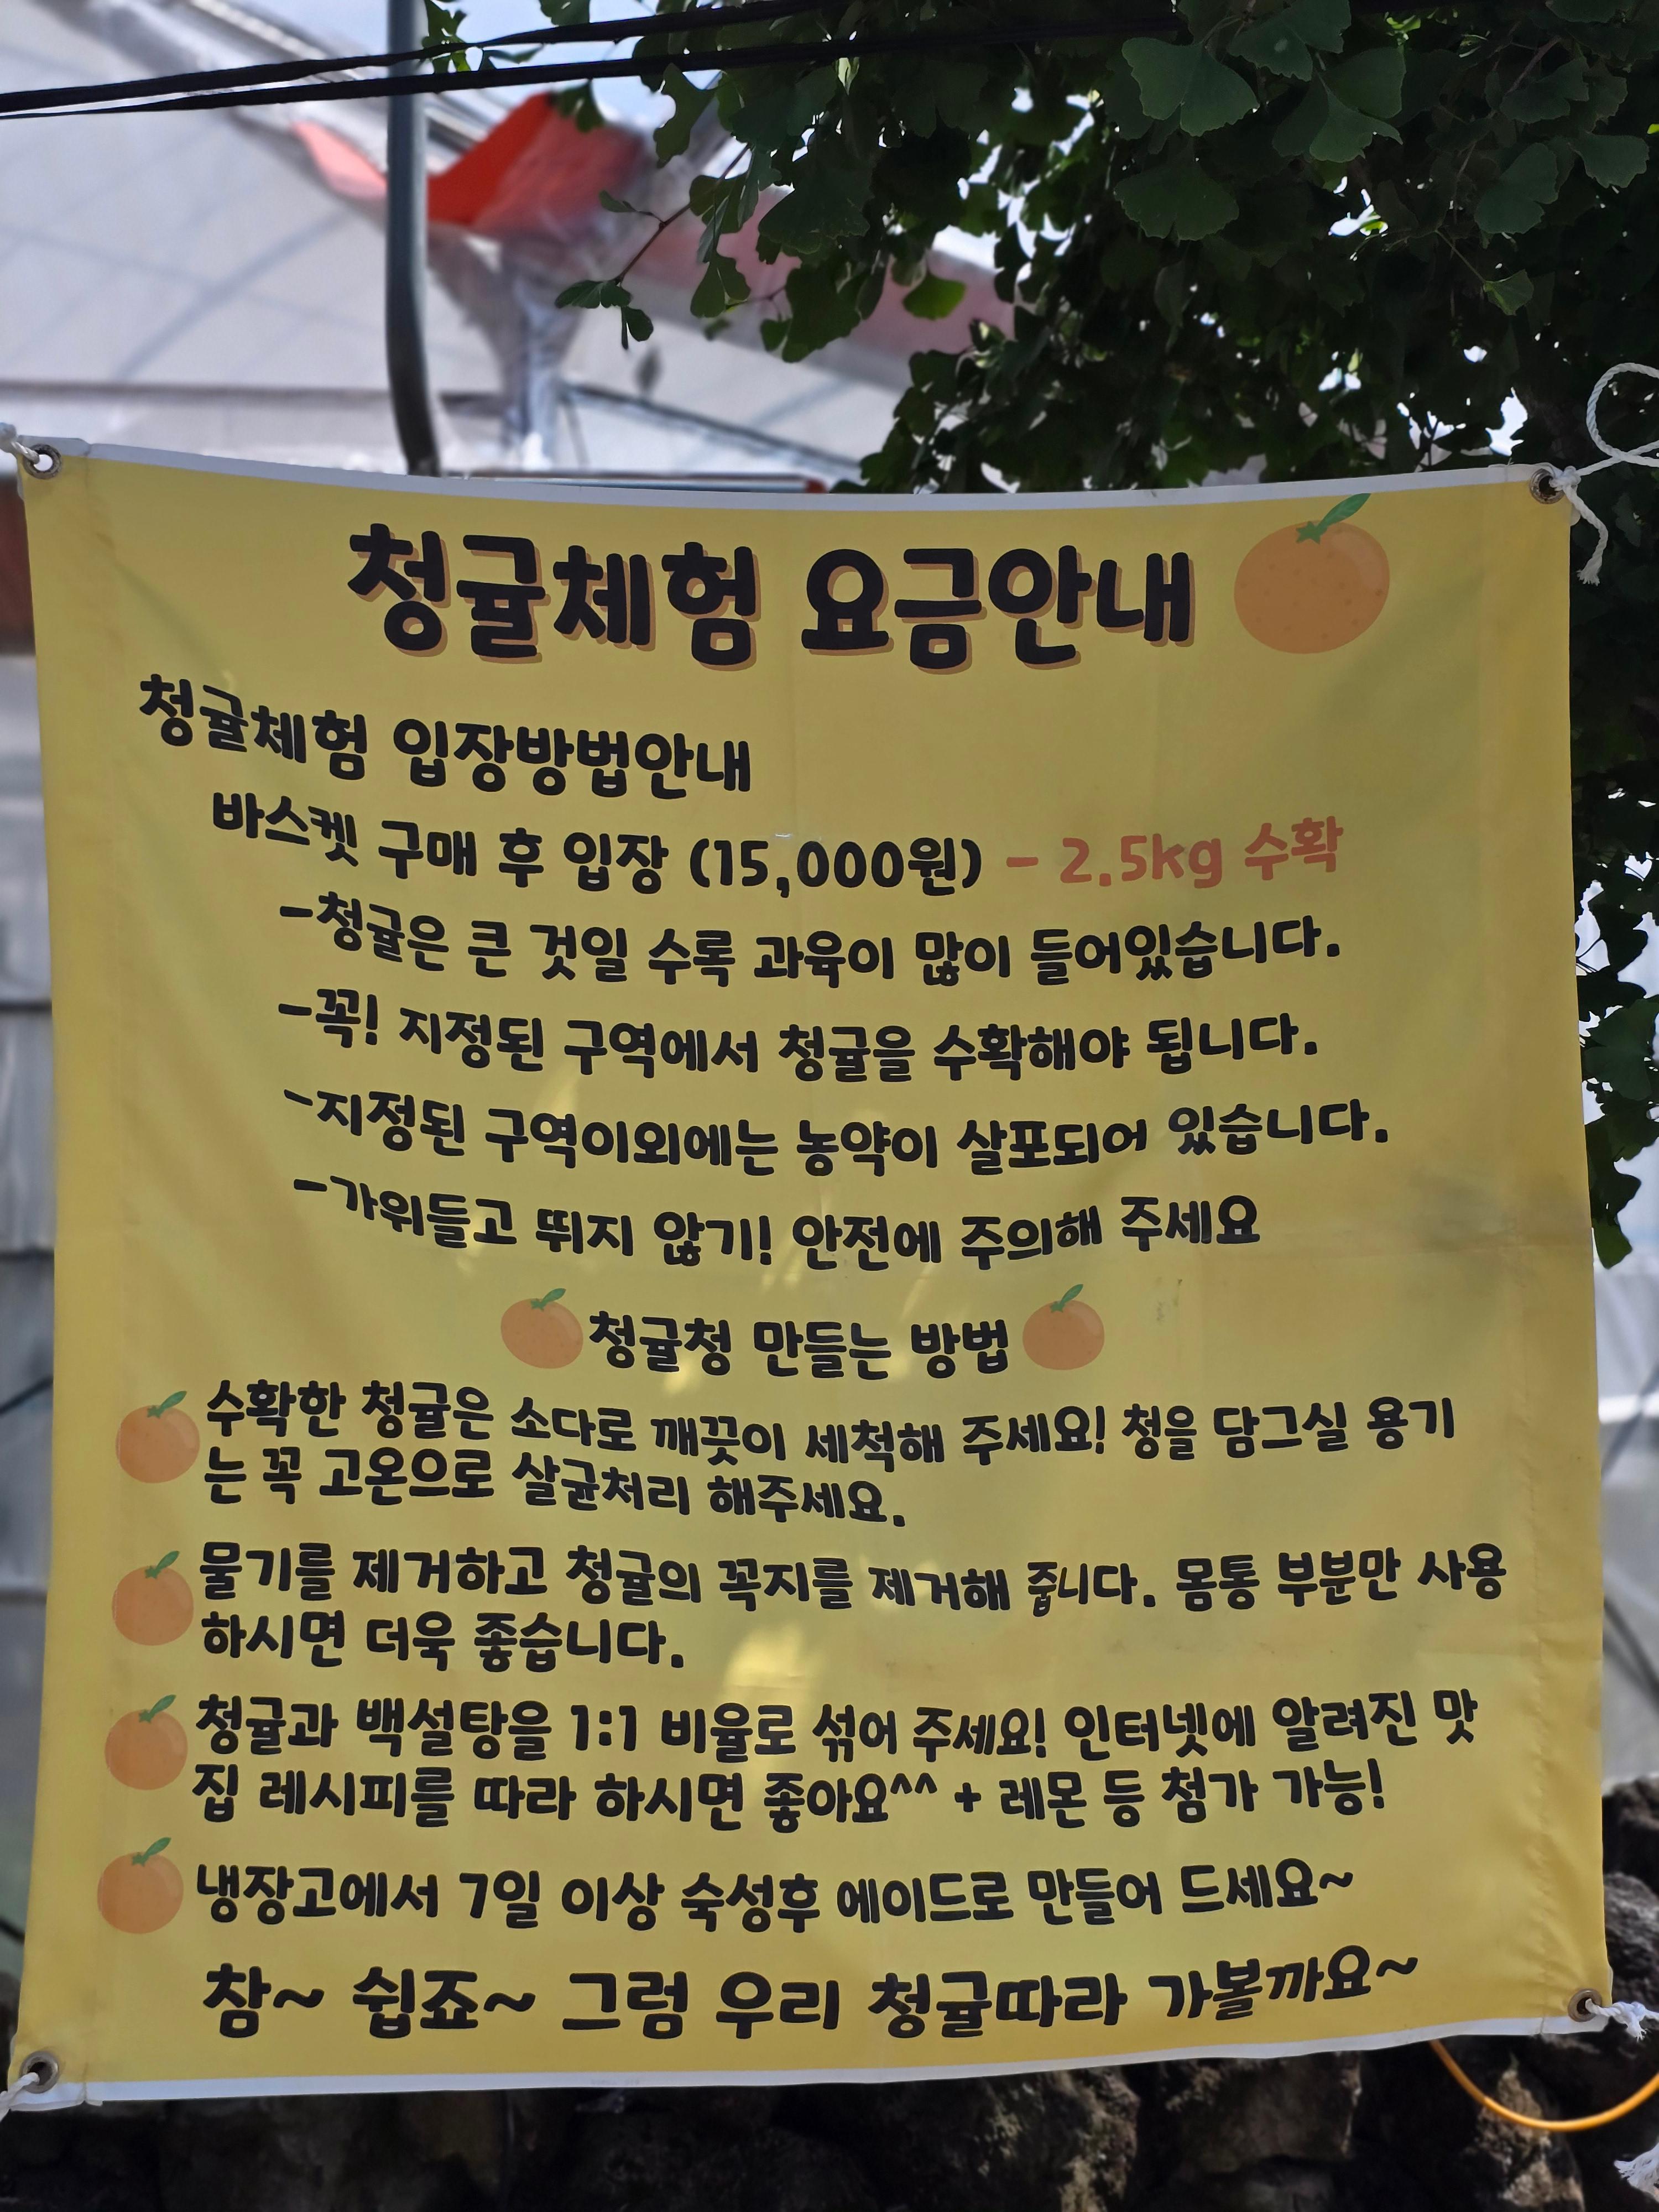 청귤체험 요금안내
청귤체험 입장방법안내
바스켓 구매 후 입장 (15,000원) - 2.5kg 수확
-청귤은 큰 것일 수록 과육이 많이 들어있습니다.
-꼭! 지정된 구역에서 청귤을 수확해야 됩니다.
-지정된 구역이외에는 농약이 살포되어 있습니다.
-가위들고 뛰지 않기! 안전에 주의해 주세요
청귤청 만들는 방법
수확한 청귤은 소다로 깨끗이 세척해 주세요! 청을 담그실 용기
는 꼭 고온으로 살균처리 해주세요.
물기를 제거하고 청귤의 꼭지를 제거해 줍니다. 몸통 부분만 사용
하시면 더욱 좋습니다.
청귤과 백설탕을 1:1 비율로 섞어 주세요! 인터넷에 알려진 맛
집 레시피를 따라 하시면 좋아요^^ + 레몬 등 첨가 가능!
냉장고에서 7일 이상 숙성후 에이드로 만들어 드세요~
참~ 쉽죠~ 그럼 우리 청귤따라 가볼까요~